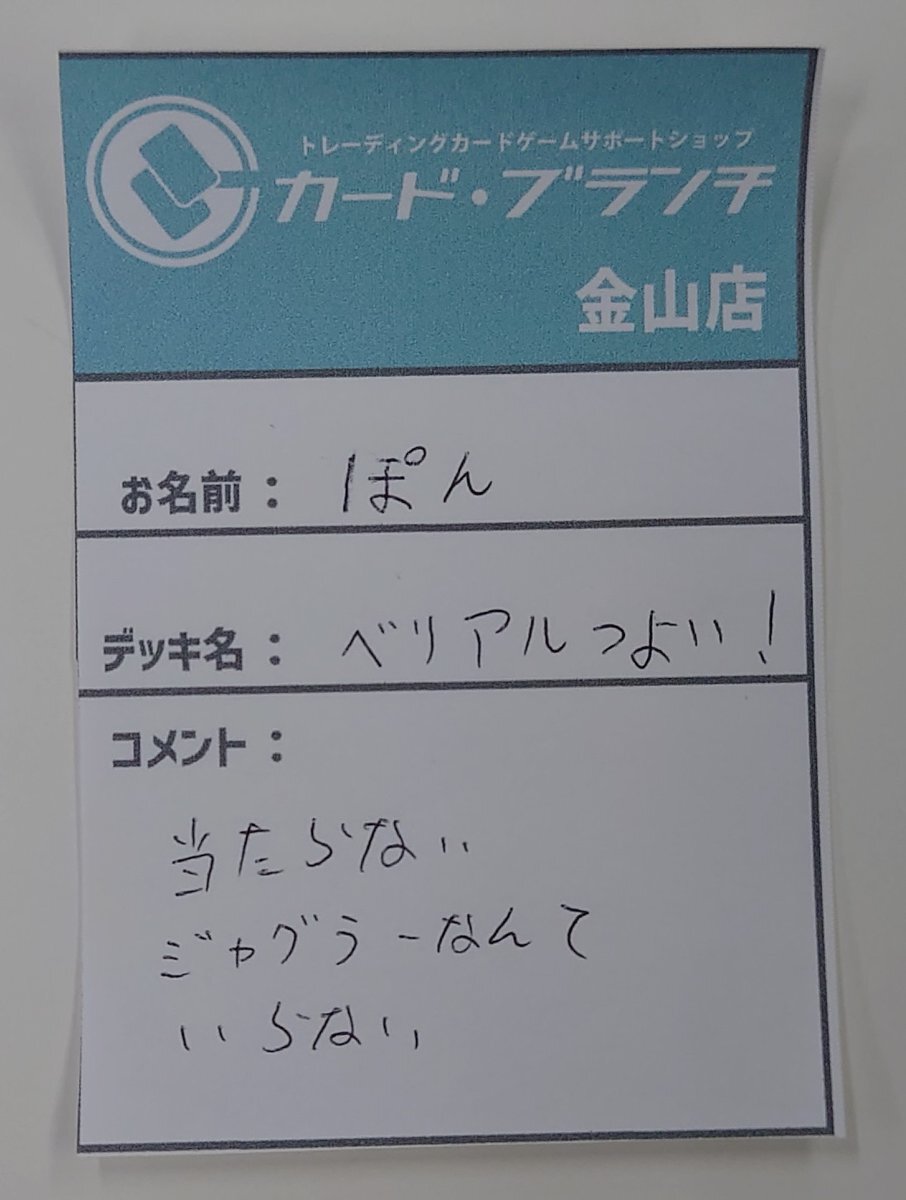 トレーディングカードゲームサポートショップ
カード・ブランチ
金山店
お名前： ぽん
デッキ名： ベリアルつよい!
コメント：
当たらない
ジャグラーなんて
いらない